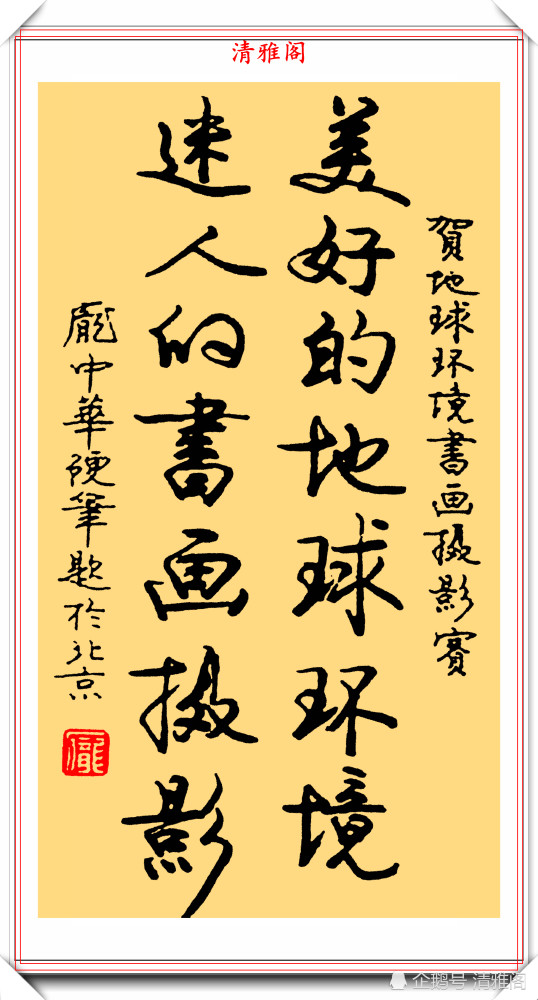 清雅阁
賀地球环境書画摄影賽
美好的地球环境
迷人的書画摄影
龐中華硬筆題於北京
龐
企鹅号 清雅阁